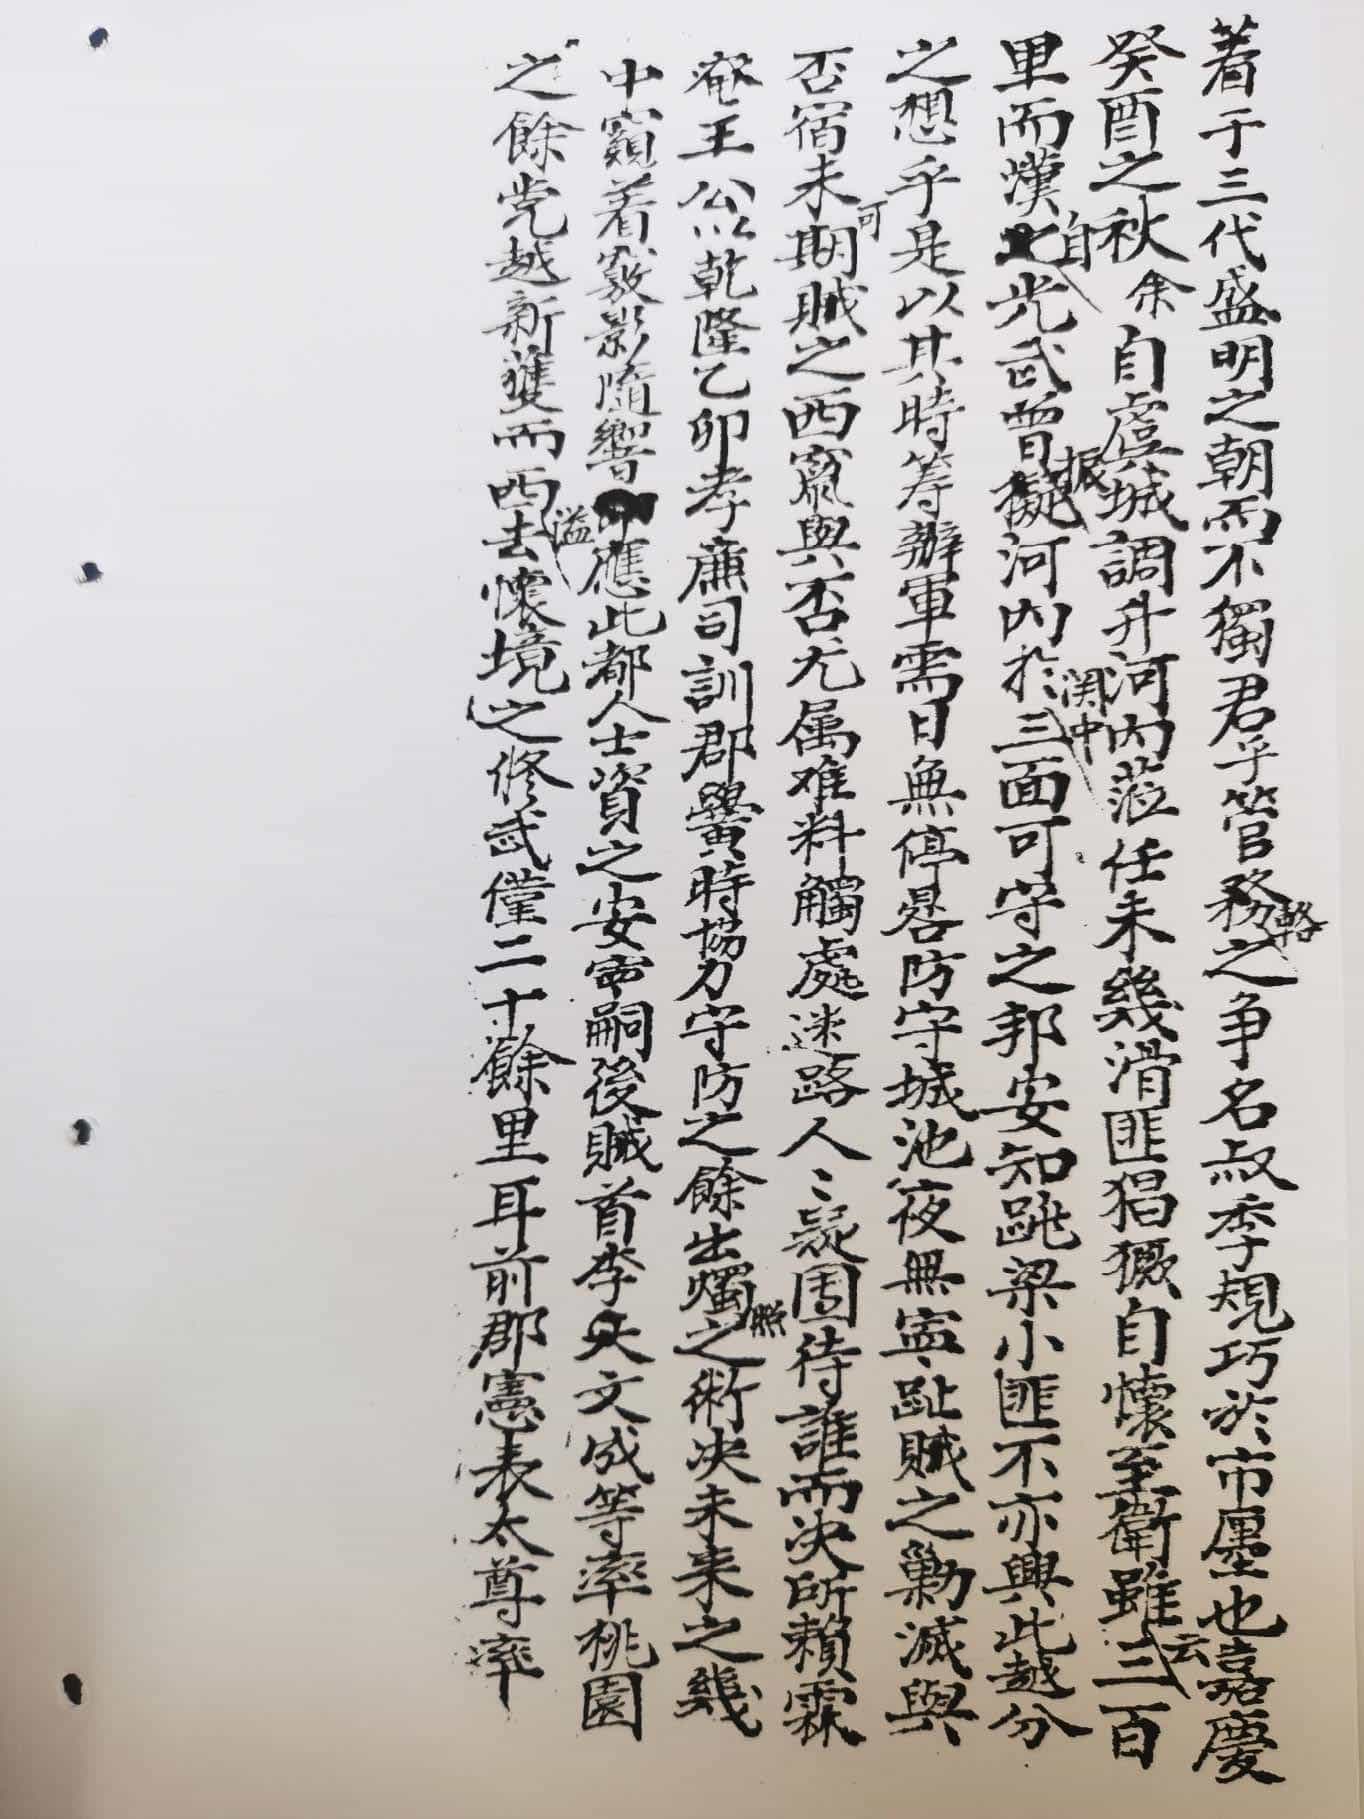 着于三代盛明之朝而不獨君乎管輅務之争名叔季規巧於市廛也嘉慶
癸酉之秋余自虞城調升河内蒞任未幾滑匪猖獗自懷至衛雖云三百
里而嘆自光武曾擬據河内於関中三面可守之邦安知跳梁小匪不亦興此越分
之想乎是以其時筹辦軍需日無停晷防守城池夜無寍趾賊之勦滅與
否宿未可期賊之西竄與否尤属难料觸處迷路人〻疑團待誰而决所賴霖
菴王公以乾隆乙卯孝廉司訓郡黌時協力守防之餘出燭照之術决未来之幾
中窺着竅影隨響應此都人士資之安寍嗣後賊首李文成等率桃園
之餘党越新獲而西去溢懷境之修武僅二十餘里耳前郡憲表太尊率